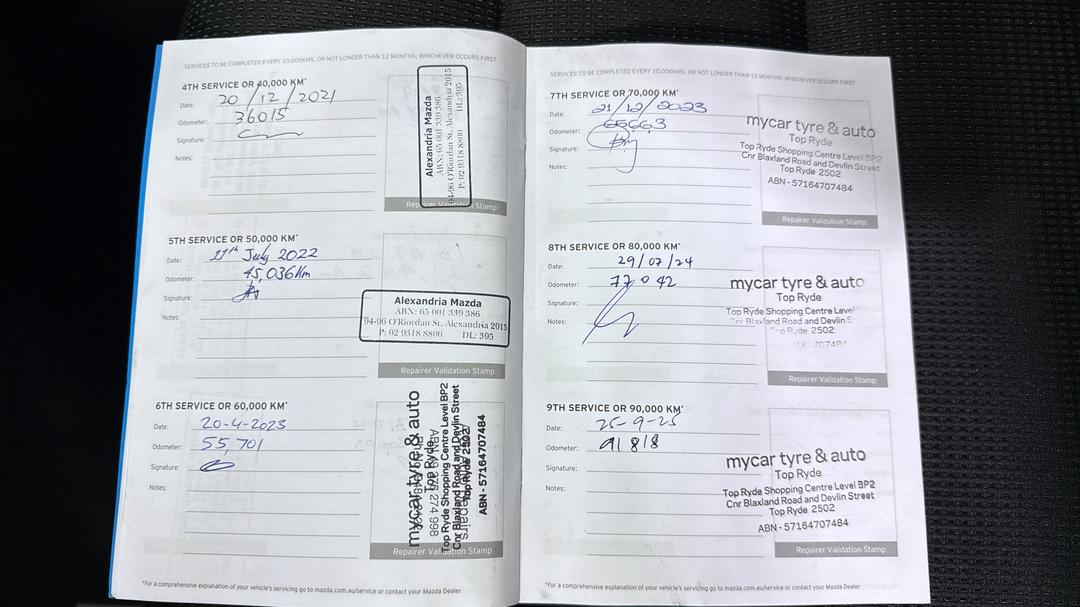 SERVICES TO BE COMPLETED EVERY 10,000KMS, OR NOT LONGER THAN 12 MONTHS, WHICHEVER OCCURS FIRST
4TH SERVICE OR 40,000 KM*
Date: 20 / 12 / 2021
Odometer: 36015
Signature:
Notes:
Alexandria Mazda
ABN: 65 001 339 386
94-96 O'Riordan St, Alexandria 2015
P: 02 9318 8800 DL: 395
Repairer Validation Stamp
5TH SERVICE OR 50,000 KM*
Date: 11th July 2022
Odometer: 45,036Km
Signature:
Notes:
Alexandria Mazda
ABN: 65 001 339 386
94-96 O'Riordan St, Alexandria 2015
P: 02 9318 8800 DL: 395
Repairer Validation Stamp
6TH SERVICE OR 60,000 KM*
Date: 20-4-2023
Odometer: 55,701
Signature:
Notes:
mycar tyre & auto
Top Ryde
Top Ryde Shopping Centre Level BP2
Cnr Blaxland Road and Devlin Street
Top Ryde 2502
ABN - 57164707484
Repairer Validation Stamp
*For a comprehensive explanation of your vehicle's servicing go to mazda.com.au/service or contact your Mazda Dealer
SERVICES TO BE COMPLETED EVERY 10,000KMS, OR NOT LONGER THAN 12 MONTHS, WHICHEVER OCCURS FIRST
7TH SERVICE OR 70,000 KM*
Date: 21/12/2023
Odometer: 66663
Signature:
Notes:
mycar tyre & auto
Top Ryde
Top Ryde Shopping Centre Level BP2
Cnr Blaxland Road and Devlin Street
Top Ryde 2502
ABN - 57164707484
Repairer Validation Stamp
8TH SERVICE OR 80,000 KM*
Date: 29/07/24
Odometer: 77042
Signature:
Notes:
mycar tyre & auto
Top Ryde
Top Ryde Shopping Centre Level
Cnr Blaxland Road and Devlin S
Top Ryde 2502
70748
Repairer Validation Stamp
9TH SERVICE OR 90,000 KM*
Date: 25-9-25
Odometer: 91818
Signature:
Notes:
mycar tyre & auto
Top Ryde
Top Ryde Shopping Centre Level BP2
Cnr Blaxland Road and Devlin Street
Top Ryde 2502
ABN - 57164707484
Repairer Validation Stamp
*For a comprehensive explanation of your vehicle's servicing go to mazda.com.au/service or contact your Mazda Dealer